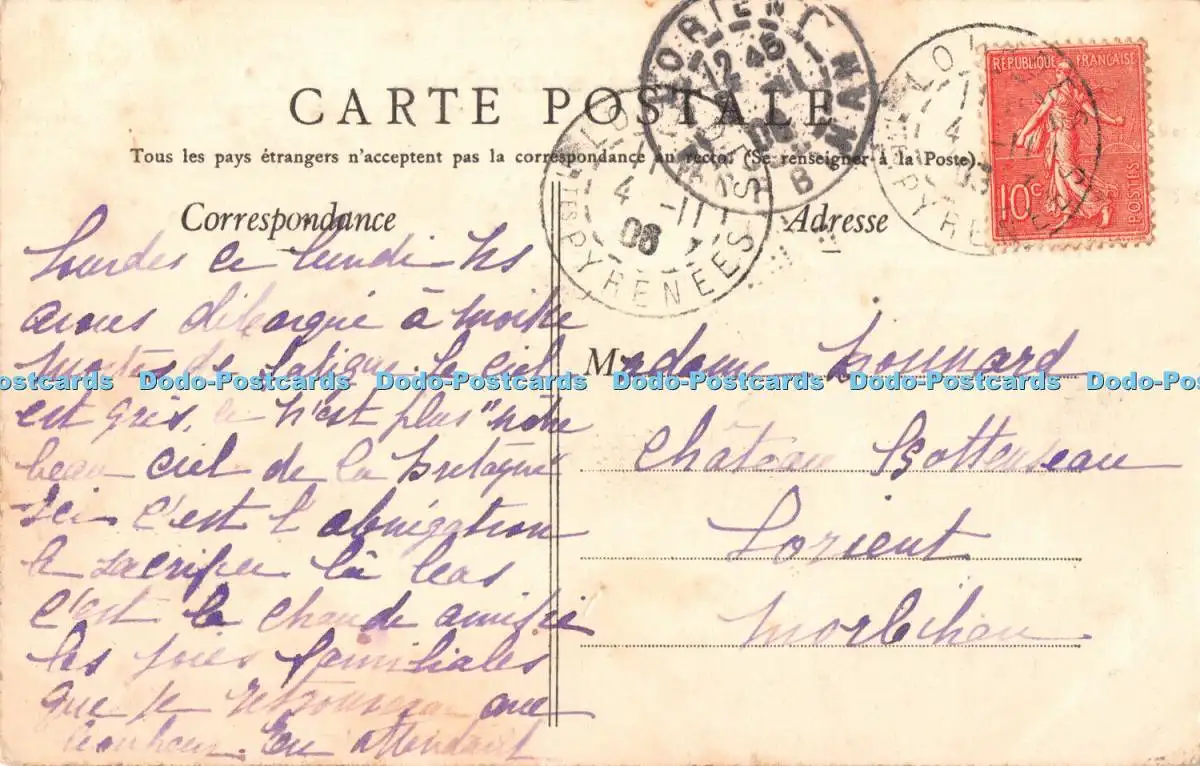 CARTE POSTALE
Tous les pays étrangers n'acceptent pas la correspondance au recto. (Se renseigner à la Poste).
Correspondance
Lourdes ce lundi Ns
avons débarqué à moitié
mortes de fatigue. Le ciel
est gris, ce n'est plus "notre
beau ciel de la Bretagne"
Ici c'est l'abnégation
le sacrifice là bas
c'est la chaude amitié
les joies familiales
que je retrouverai avec
bonheur. En attendant
Adresse
Madame
Château
Lorient
Morbihan
RÉPUBLIQUE FRANÇAISE
10c
POSTES
LORIENT MORBIHAN
12 45
4 -11
06
PYRENEES
4 -11
PYRENEES
Dodo-Postcards Dodo-Postcards Dodo-Postcards Dodo-Postcards Dodo-Postcards Dodo-Postcards